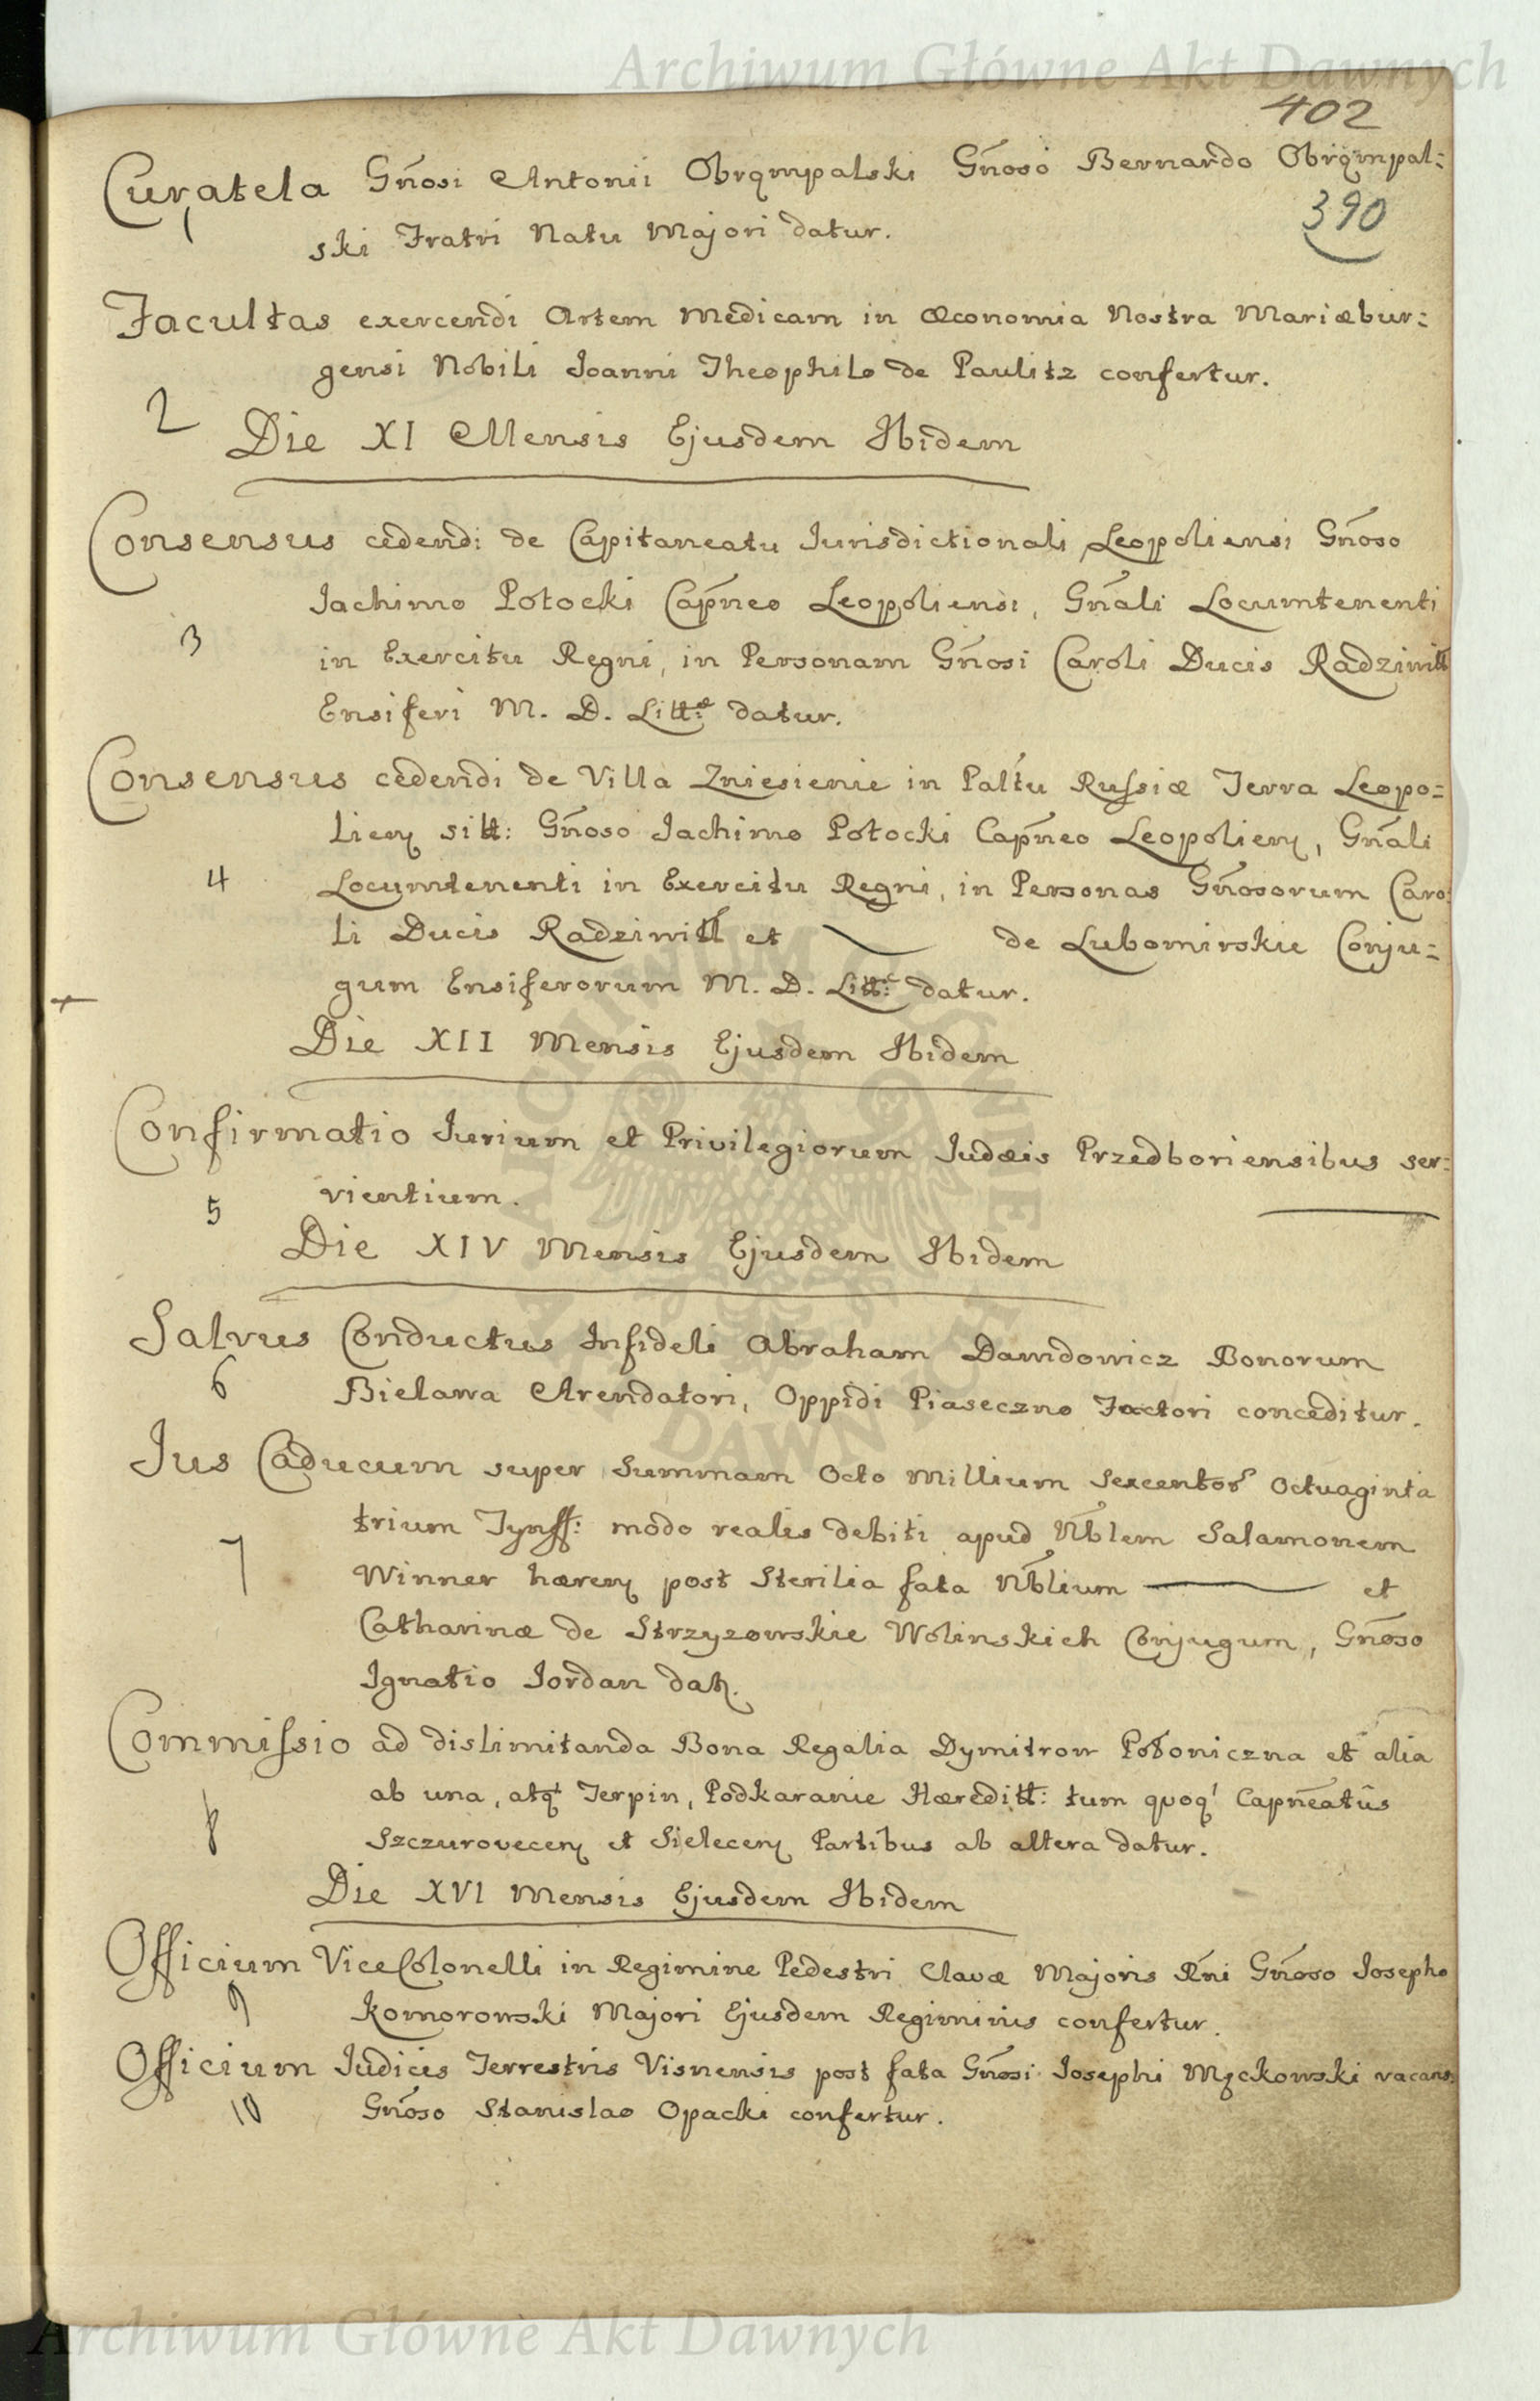 Archiwum Główne Akt Dawnych
402
Curatela Gñosi Antonii Obrąmpalski Gñoso Bernardo Obrąmpal=
390
1
ski Fratri Natu Majori datur.
Facultas exercendi Artem Medicam in Œconomia Nostra Mariæbur=
gensi Nobili Joanni Theophilo de Paulitz confertur.
2
Die XI Mensis Ejusdem Ibidem
Consensus cedendi de Capitaneatu Jurisdictionali Leopoliensi Gñoso
Jachimo Potocki Capñeo Leopoliensi, Gñali Locumtenenti
3
in Exercitu Regni, in Personam Gñosi Caroli Ducis Radziwill
Ensiferi M. D. Litt:æ datur.
Consensus cedendi de Villa Zniesienie in Paltu Russiæ Terra Leopo=
lien sitt: Gñoso Jachimo Potocki Capñeo Leopolien, Gñali
4
Locumtenenti in Exercitu Regni, in Personas Gñosorum Caro=
li Ducis Radziwill et — de Lubomirskie Conju=
gum Ensiferorum M. D. Litt:æ datur.
Die XII Mensis Ejusdem Ibidem
Confirmatio Jurium et Privilegiorum Judæis Przedboriensibus ser=
5
vientium.
Die XIV Mensis Ejusdem Ibidem
Salvus Conductus Infideli Abraham Dawidowicz Bonorum
6
Bielawa Arendatori, Oppidi Piaseczno Factori conceditur.
Jus Caducum super Summam Octo Millium Sexcentor Octuaginta
trium Tynff: modo realis debiti apud Nblem Salamonem
7
Winner hæren post Sterilia fata Nblium — et
Catharinæ de Strzyzowskie Wolinskich Conjugum, Gñoso
Ignatio Jordan dat.
Commissio ad dislimitanda Bona Regalia Dymitrow Potoniczna et alia
ab una, atq' Terpin, Podkaranie Hæreditt: tum quoq' Capñeatûs
8
Szczurovecen et Sielecen Partibus ab altera datur.
Die XVI Mensis Ejusdem Ibidem
Officium ViceColonelli in Regimine Pedestri Clavæ Majoris Rñi Gñoso Josepho
9
Komorowski Majori Ejusdem Regiminis confertur.
Officium Judicis Terrestris Visnensis post fata Gñosi Josephi Mẹckowski vacans:
10
Gñoso Stanislao Opacki confertur.
Archiwum Główne Akt Dawnych